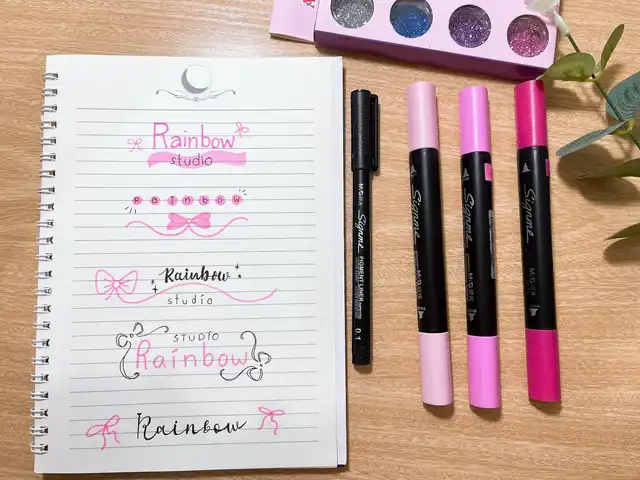 Rainbow
studio
Rainbow
Rainbow
studio
STUDIO
Rainbow
Rainbow
Signme
PIGMENT LINER
0.1
Signme
Signme
Signme